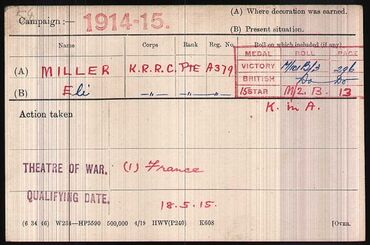 Campaign :— 1914-15.
(A) Where decoration was earned.
(B) Present situation.
Name Corps Rank Reg. No. Roll on which included (if any)
MEDAL ROLL PAGE
(A) MILLER K.R.R.C. Pte A379 VICTORY 296
(B) Eli —"— —"— BRITISH Do Do
15 STAR M/2. B. 13
Action taken K. in A.
THEATRE OF WAR. (1) France
QUALIFYING DATE. 18.5.15.
(6 34 46) W234—HP5590 500,000 4/19 HWV(P240) K608